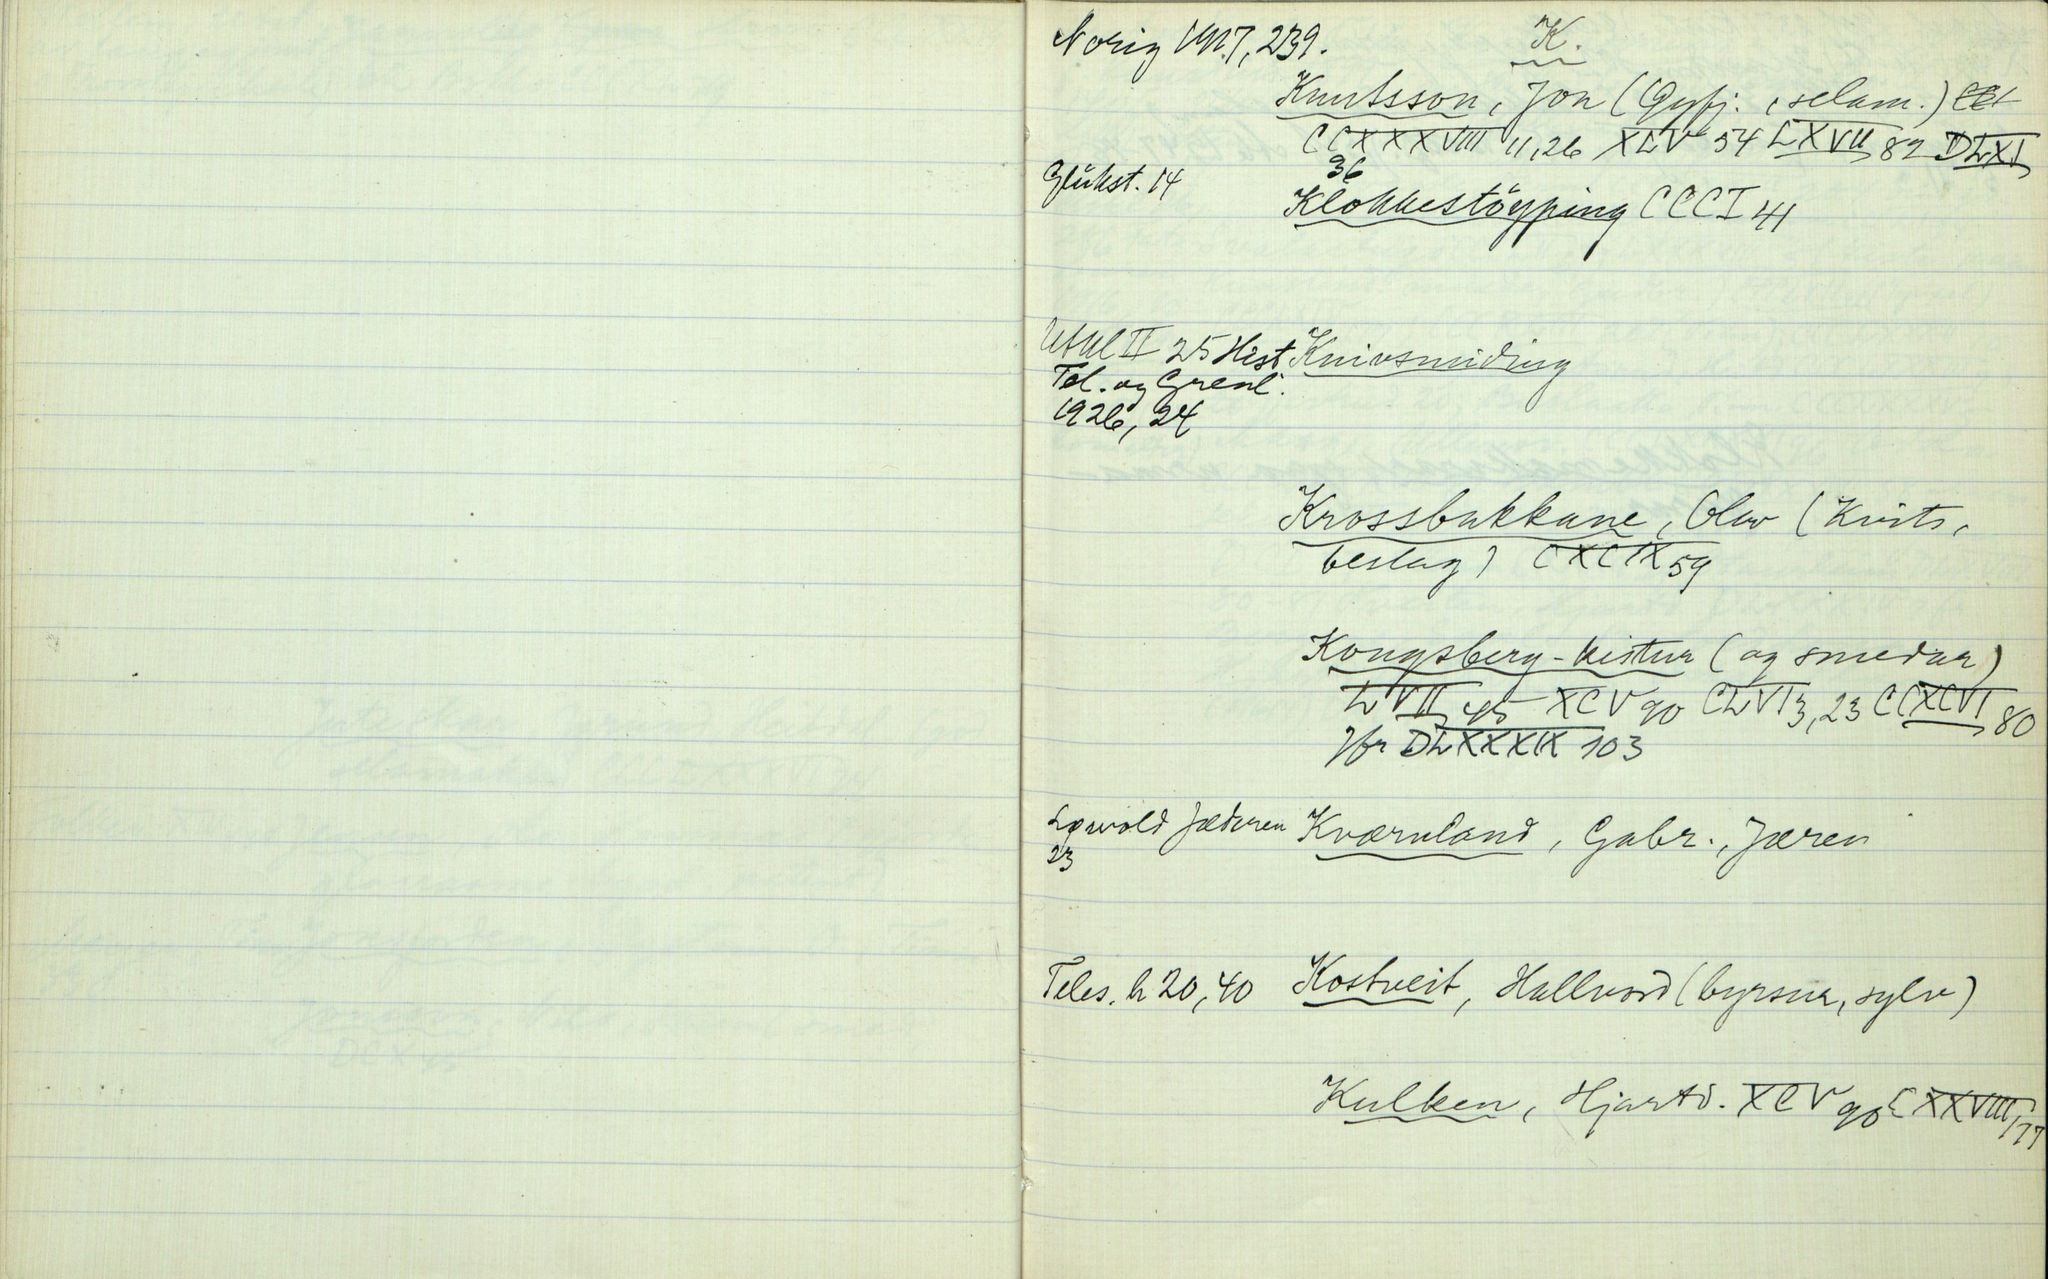 Norig 1927, 239.
K.
Knutsson, Jon (Gyfj., selam.)
CCXXXVIII 11,26 XLV 54 LXVII 82 DLXI
36
Glükst. 14
Klokkestöyping CCCI 41
II 25 Hist. Knivsmiding
Tel. og Grenl.
1926, 24
Krossbakkane, Olav (Knivs,
beslag) CXCIX 59
Kongsberg-kistur (og smedar)
LVII 45 XCV 90 CLVI 3, 23 CCXCVI 80
Jfr DLXXXIX 103
Jæderen Kværnland, Gabr., Jæren
23
Teles. h 20, 40 Kostveit, Hallvord (byrsur, sylv)
Kulken, Hjartd. XCV 90 CXXVIII 177